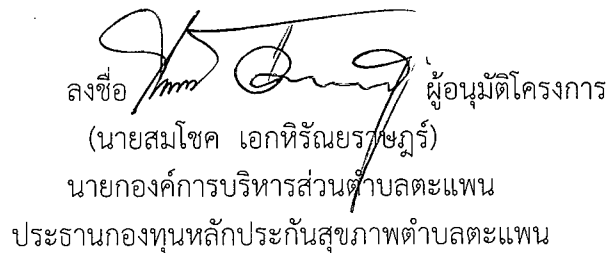 ลงชื่อ ผู้อนุมัติโครงการ
(นายสมโชค เอกหิรัณยราษฎร์)
นายกองค์การบริหารส่วนตำบลตะแพน
ประธานกองทุนหลักประกันสุขภาพตำบลตะแพน